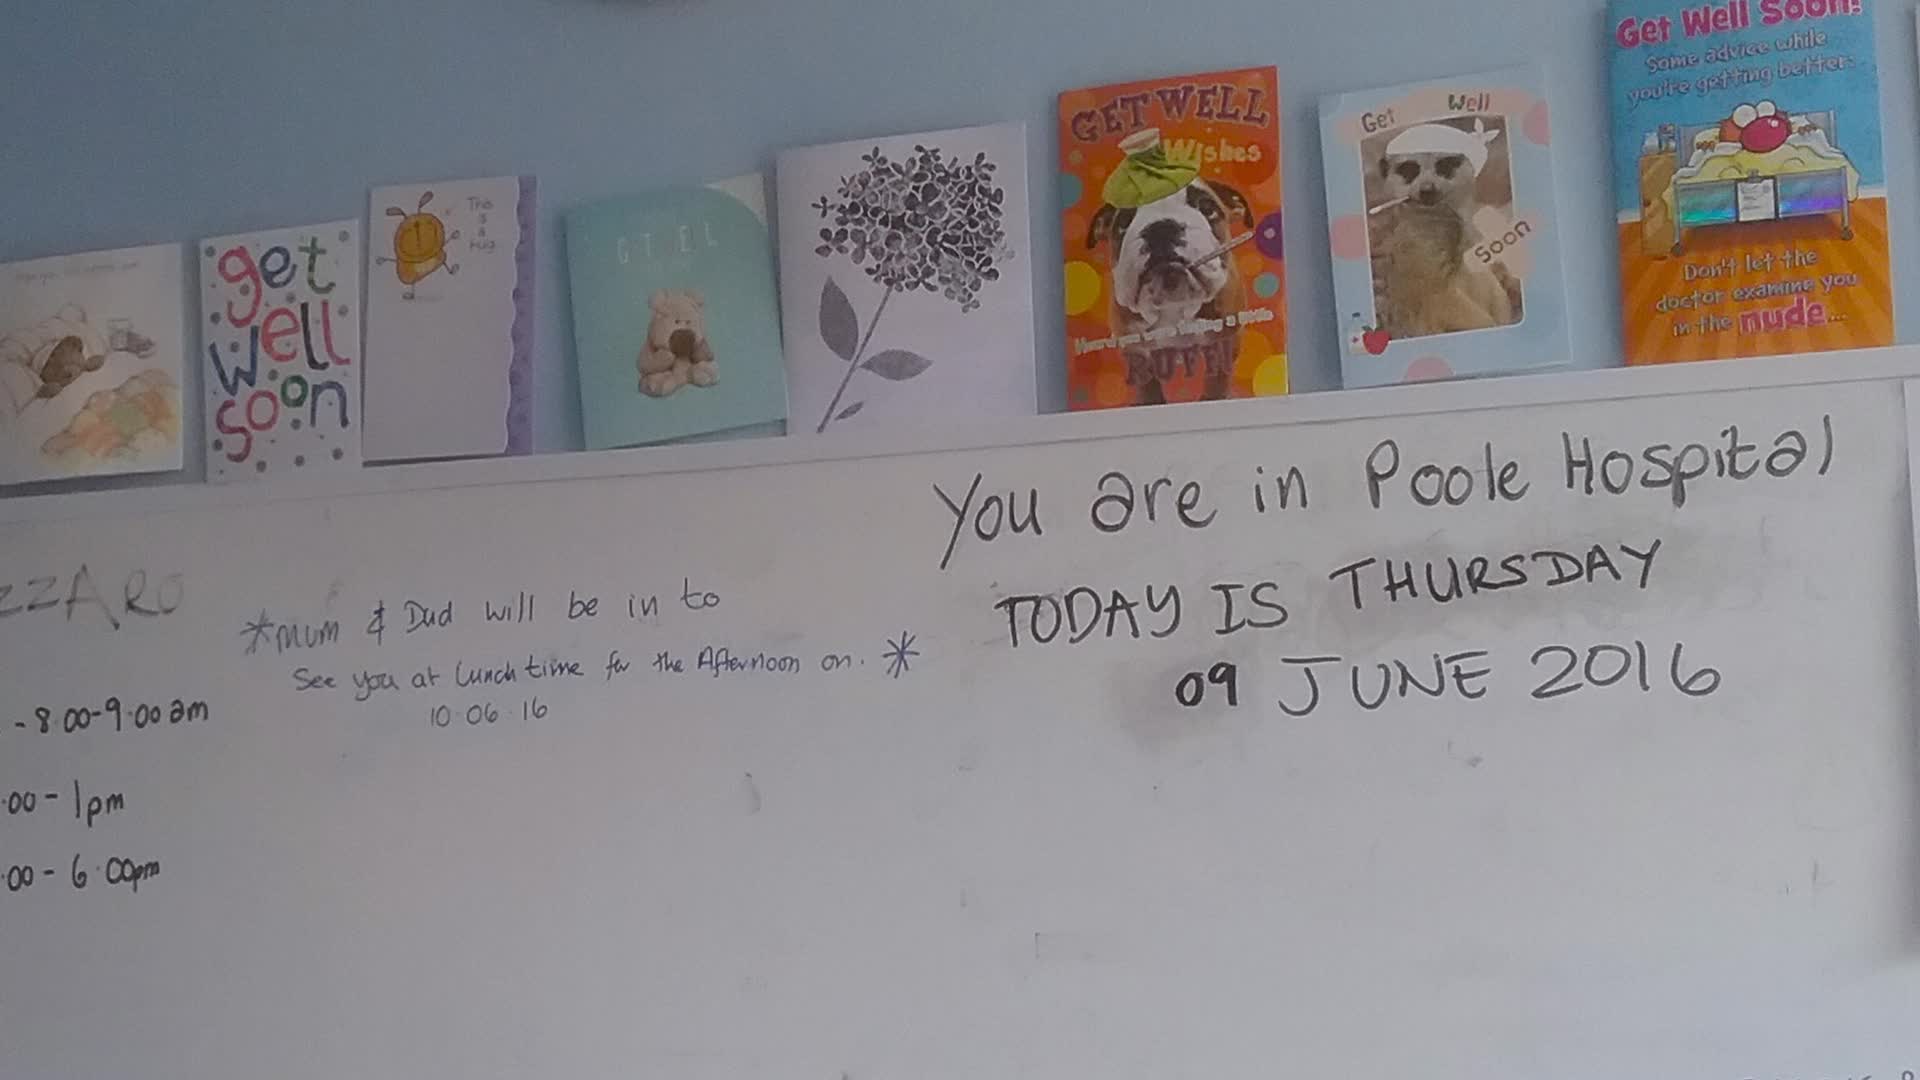 get
well
soon
This
is
a
hug
GET WELL
Wishes
RUFF!
Get Well
Soon
Get Well Soon!
Some advice while
you're getting better:
Don't let the
doctor examine you
in the nude...
You are in Poole Hospital
TODAY IS THURSDAY
09 JUNE 2016
ZZARO
*Mum & Dad will be in to
See you at lunch time for the Afternoon on. *
10.06.16
- 8.00-9.00am
.00 - 1pm
.00 - 6.00pm